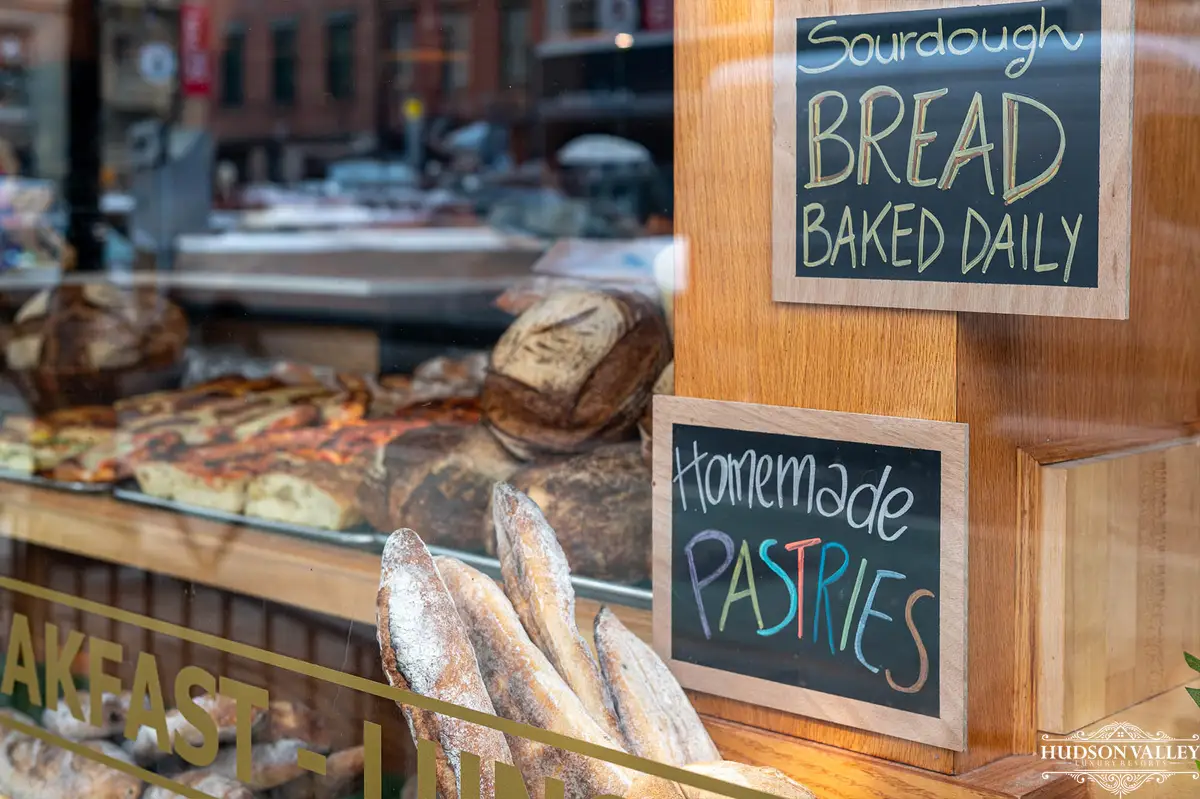 Sourdough
BREAD
BAKED DAILY
Homemade
PASTRIES
AKFAST - LUNC
HUDSON VALLEY
LUXURY RESORTS